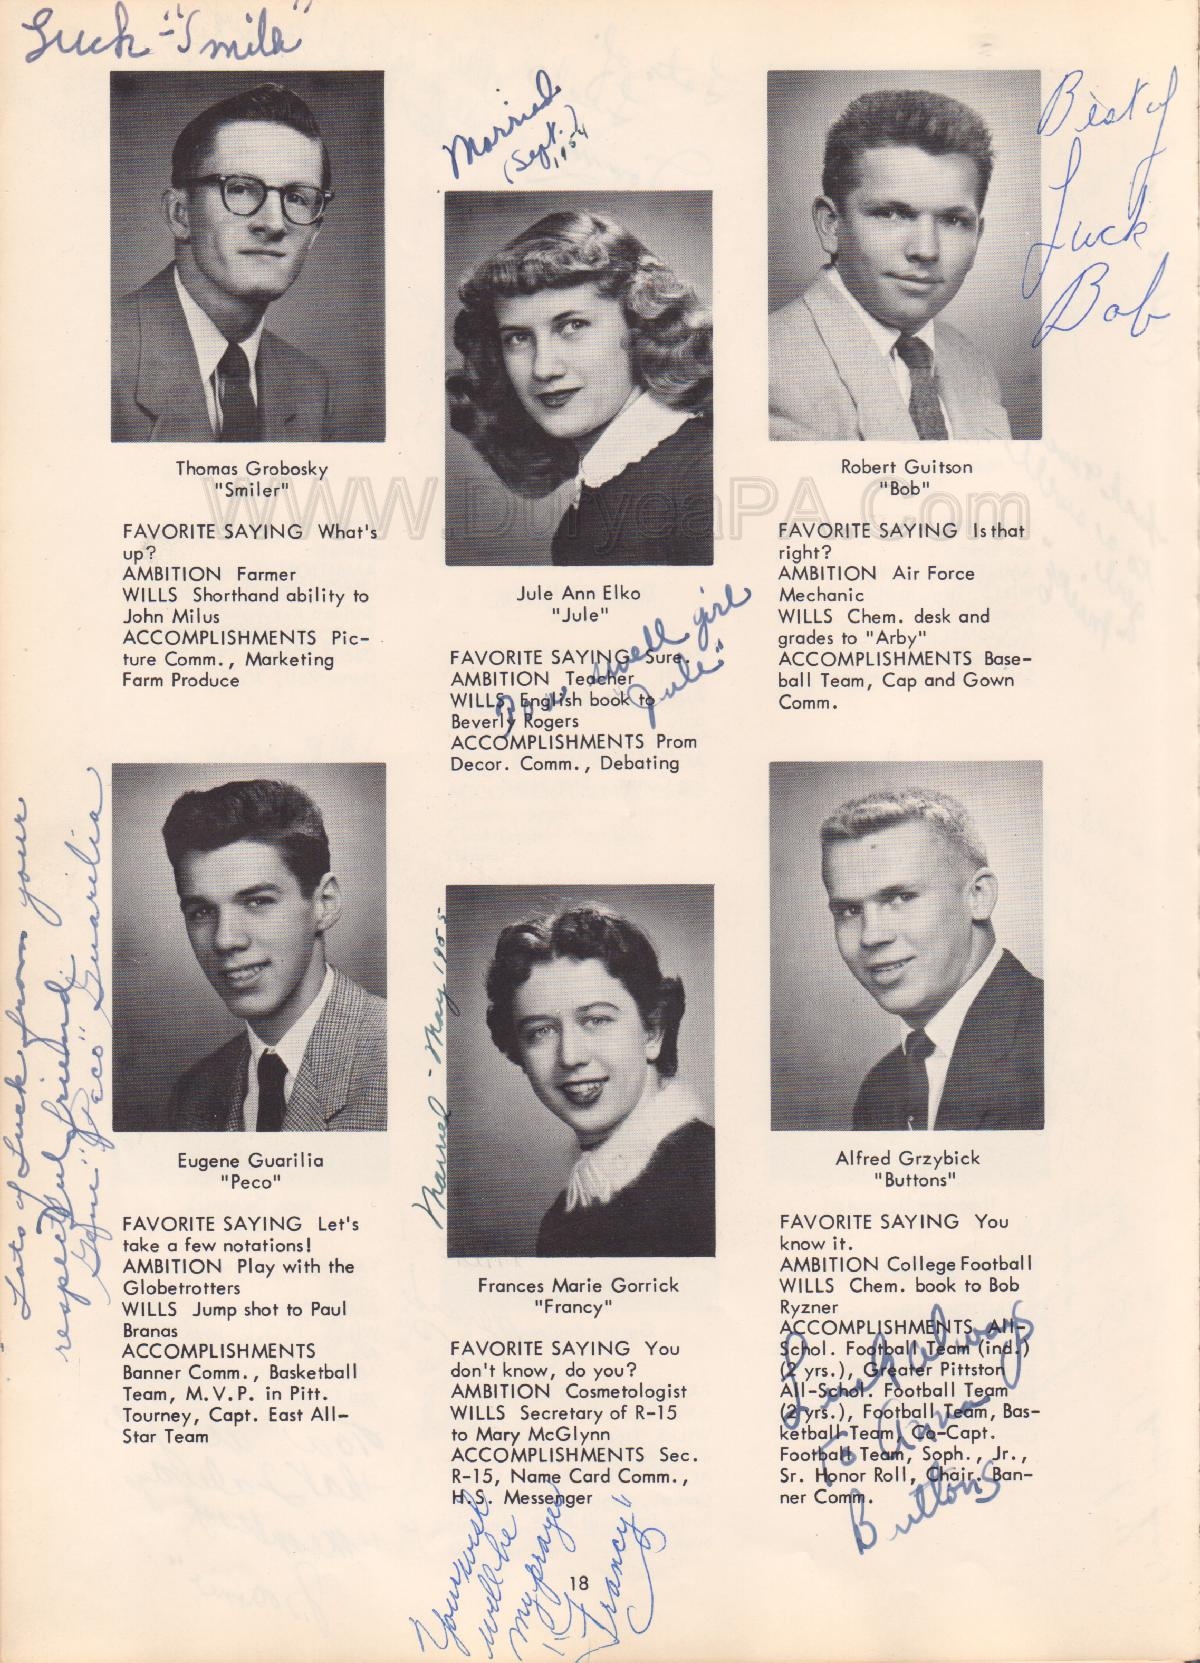 Luck "Smila"
Married
(Sept.)
1954
Best of
Luck
Bob
Thomas Grobosky
"Smiler"
FAVORITE SAYING What's
up?
AMBITION Farmer
WILLS Shorthand ability to
John Milus
ACCOMPLISHMENTS Pic-
ture Comm., Marketing
Farm Produce
WWW.DuryeaPA.Com
Jule Ann Elko
"Jule"
FAVORITE SAYING Sure.
AMBITION Teacher
WILLS English book to
Beverly Rogers
ACCOMPLISHMENTS Prom
Decor. Comm., Debating
swell girl
"Jule"
Robert Guitson
"Bob"
FAVORITE SAYING Is that
right?
AMBITION Air Force
Mechanic
WILLS Chem. desk and
grades to "Arby"
ACCOMPLISHMENTS Base-
ball Team, Cap and Gown
Comm.
Lots of Luck from your
respectful friend:
Gene "Peco" Guarilia
Eugene Guarilia
"Peco"
FAVORITE SAYING Let's
take a few notations!
AMBITION Play with the
Globetrotters
WILLS Jump shot to Paul
Branas
ACCOMPLISHMENTS
Banner Comm., Basketball
Team, M.V.P. in Pitt.
Tourney, Capt. East All-
Star Team
Married - May 1955
Frances Marie Gorrick
"Francy"
FAVORITE SAYING You
don't know, do you?
AMBITION Cosmetologist
WILLS Secretary of R-15
to Mary McGlynn
ACCOMPLISHMENTS Sec.
R-15, Name Card Comm.,
H.S. Messenger
Your wish
will be
my prayer
"Francy"
Alfred Grzybick
"Buttons"
FAVORITE SAYING You
know it.
AMBITION College Football
WILLS Chem. book to Bob
Ryzner
ACCOMPLISHMENTS All-
Schol. Football Team (ind.)
(2 yrs.), Greater Pittston
All-Schol. Football Team
(2 yrs.), Football Team, Bas-
ketball Team, Co-Capt.
Football Team, Soph., Jr.,
Sr. Honor Roll, Chair. Ban-
ner Comm.
Luck Always
To Anna
Buttons
18